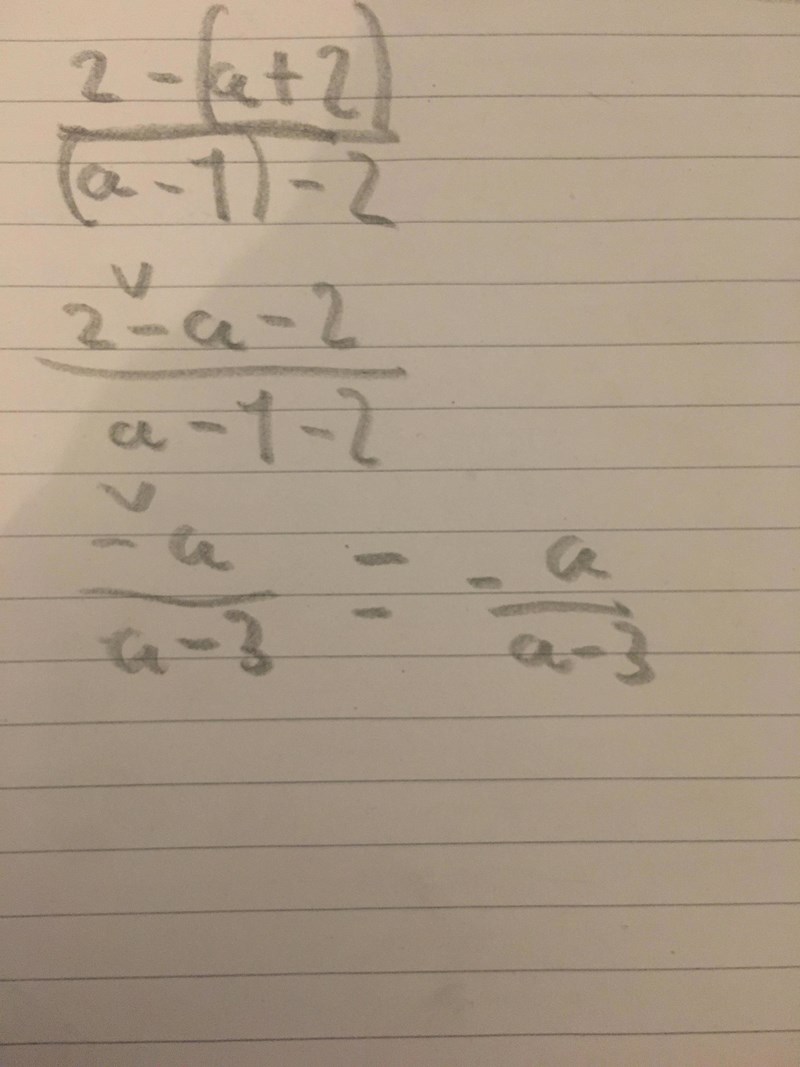 2 - (a + 2)
(a - 1) - 2
v
2 - a - 2
a - 1 - 2
v
- a = - a
a - 3 a - 3